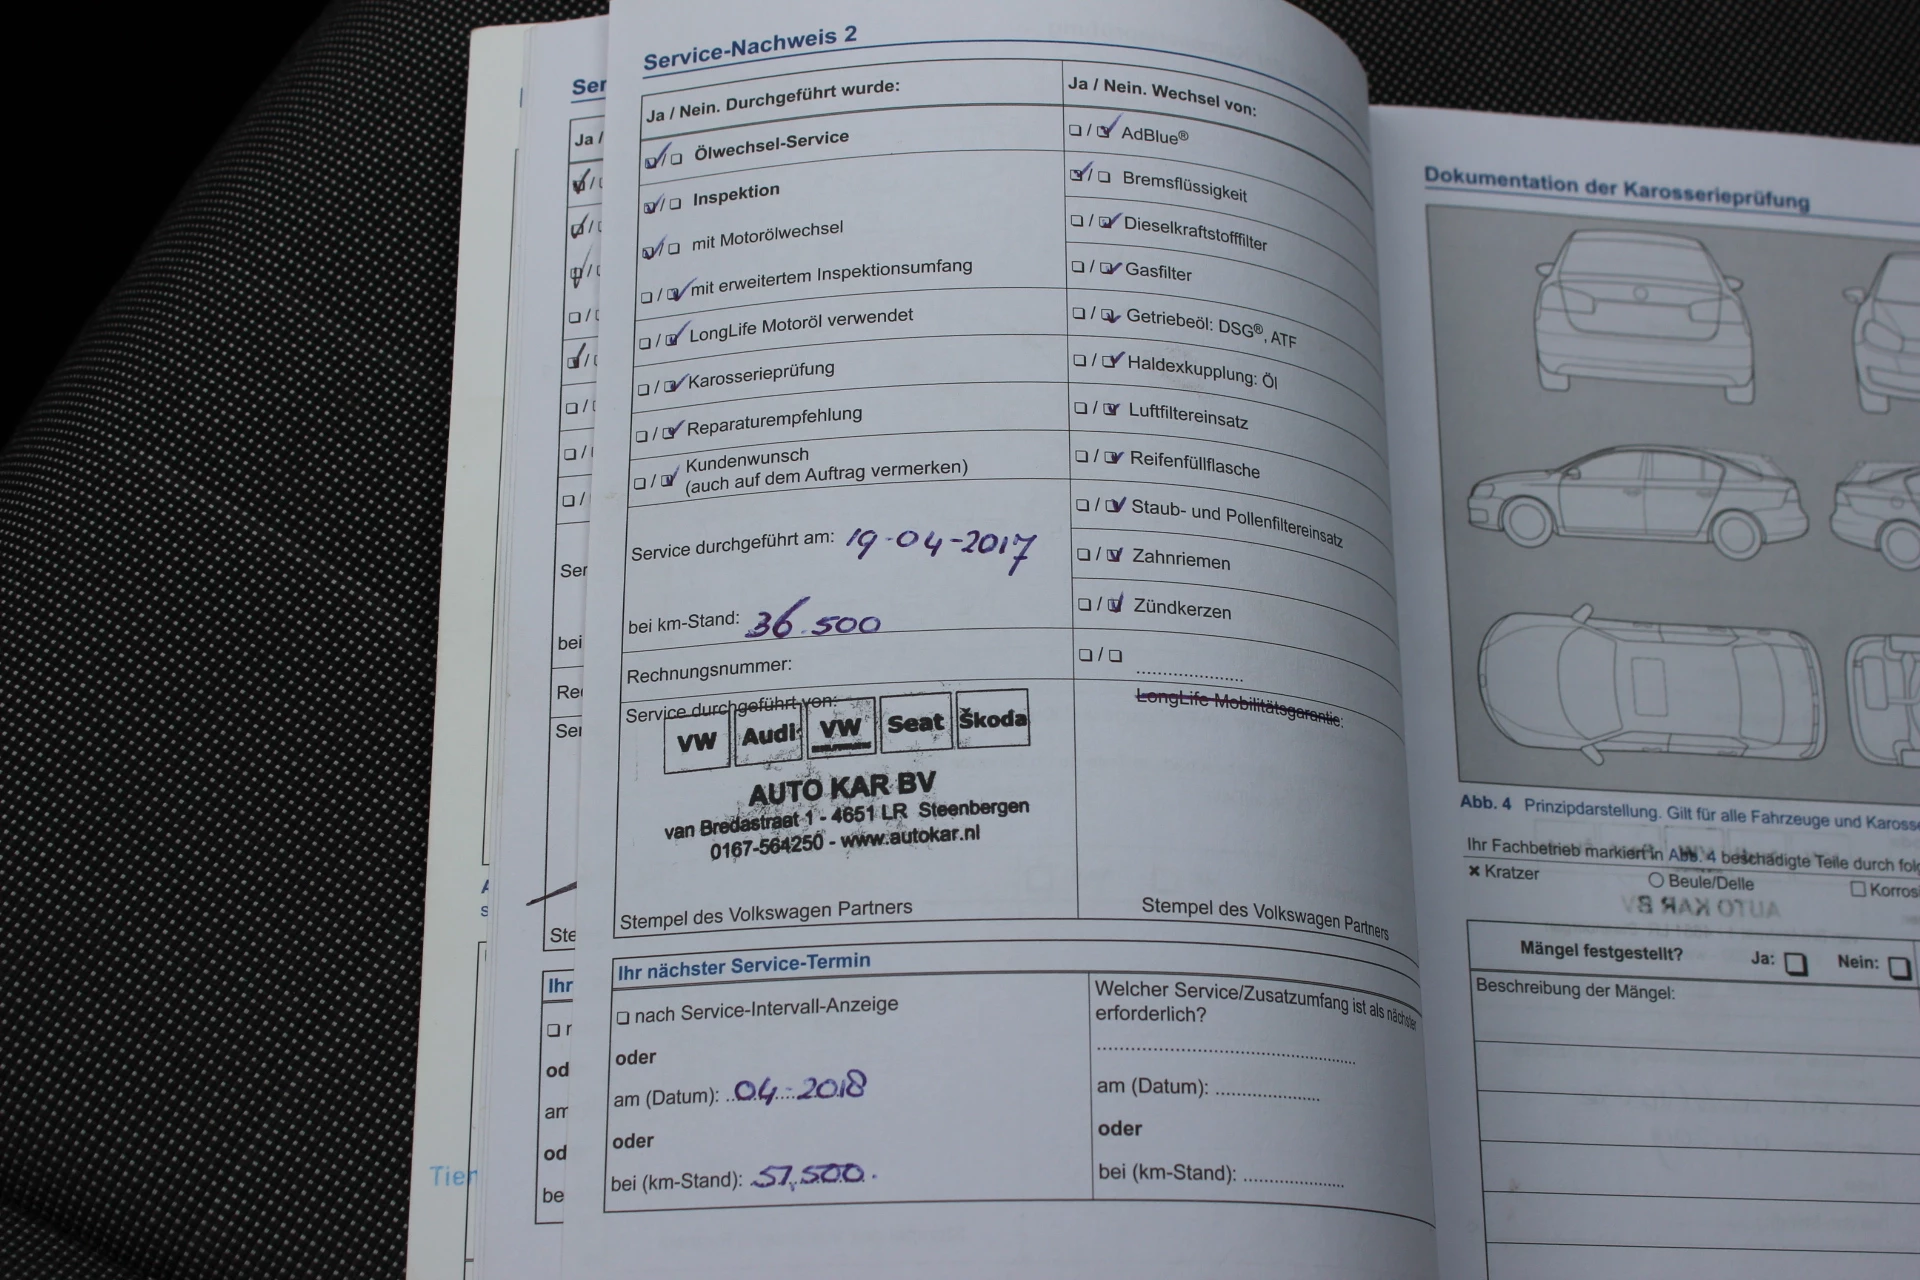 Service-Nachweis 2
Ja / Nein. Durchgeführt wurde:
Ölwechsel-Service
Inspektion
mit Motorölwechsel
mit erweitertem Inspektionsumfang
LongLife Motoröl verwendet
Karosserieprüfung
Reparaturempfehlung
Kundenwunsch
(auch auf dem Auftrag vermerken)
Service durchgeführt am: 19-04-2017
bei km-Stand: 36.500
Rechnungsnummer:
Service durchgeführt von:
VW Audi VW Seat Škoda
AUTO KAR BV
van Bredastraat 1 - 4651 LR Steenbergen
0167-564250 - www.autokar.nl
Stempel des Volkswagen Partners
Ja / Nein. Wechsel von:
AdBlue®
Bremsflüssigkeit
Dieselkraftstofffilter
Gasfilter
Getriebeöl: DSG®, ATF
Haldexkupplung: Öl
Luftfiltereinsatz
Reifenfüllflasche
Staub- und Pollenfiltereinsatz
Zahnriemen
Zündkerzen
LongLife Mobilitätsgarantie:
Stempel des Volkswagen Partners
Ihr nächster Service-Termin
nach Service-Intervall-Anzeige
oder
am (Datum): 04-2018
oder
bei (km-Stand): 57.500.
Welcher Service/Zusatzumfang ist als nächster
erforderlich?
am (Datum):
oder
bei (km-Stand):
Ser
Ja /
Ser
bei
Ser
Ste
Ihr
od
am
od
be
Tier
Dokumentation der Karosserieprüfung
Abb. 4 Prinzipdarstellung. Gilt für alle Fahrzeuge und Karosse
Ihr Fachbetrieb markiert in Abb. 4 beschädigte Teile durch folg
Kratzer
Beule/Delle
Korros
Mängel festgestellt? Ja: Nein:
Beschreibung der Mängel: